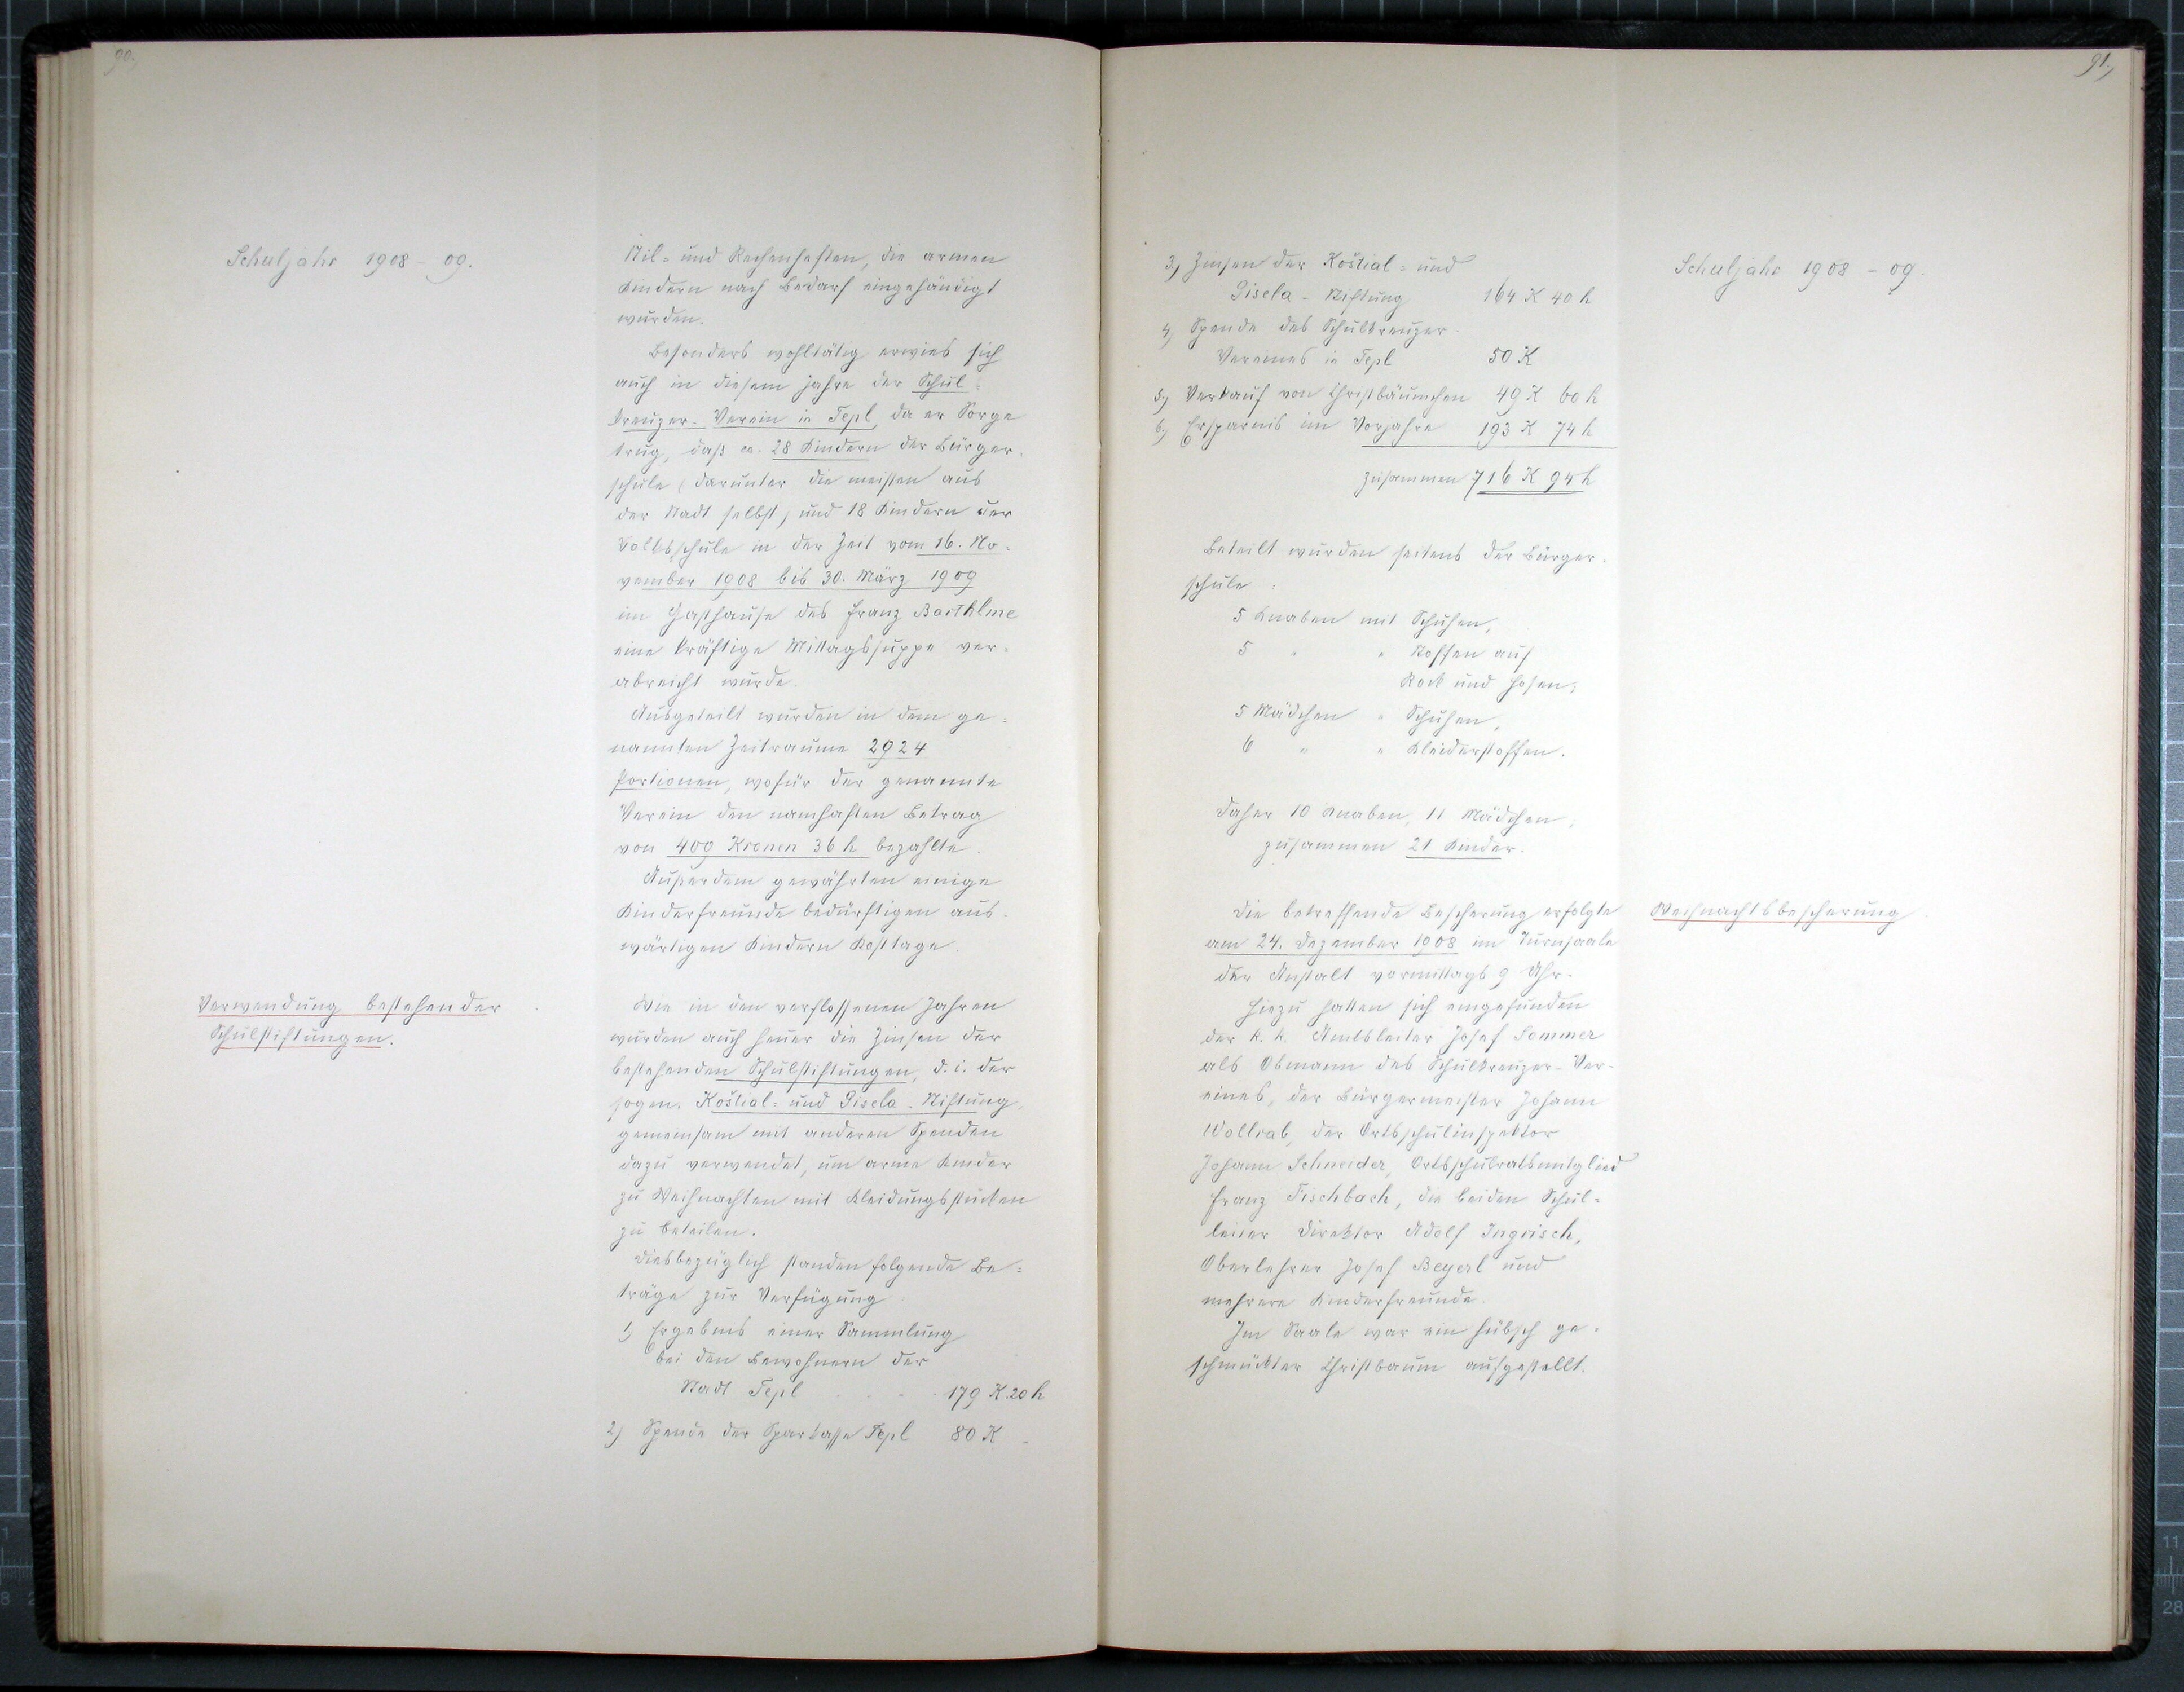 90.
Schuljahr 1908-09.
Stil- und Rechenheften, die armen
Kindern nach Bedarf eingehändigt
wurden.
Besonders wohltätig erwies sich
auch in diesem Jahre der Schul=
kreuzer-Verein in Tepl, da er Sorge
trug, daß ca. 28 Kindern der Bürger-
schule (darunter die meisten aus
der Stadt selbst) und 18 Kindern der
Volksschule in der Zeit vom 16. No-
vember 1908 bis 30. März 1909
im Gasthause des Franz Barthlme
eine kräftige Mittagssuppe ver-
abreicht wurde.
Ausgeteilt wurden in dem ge=
nannten Zeitraume 2924
Portionen, wofür der genannte
Verein den namhaften Betrag
von 409 Kronen 36 h bezahlte.
Außerdem gewährten einige
Kinderfreunde bedürftigen aus-
wärtigen Kindern Kosttage.
Verwendung bestehender
Schulstiftungen.
Wie in den verflossenen Jahren
wurden auch heuer die Zinsen der
bestehenden Schulstiftungen, d. i. der
sogen. Koštial= und Gisela-Stiftung,
gemeinsam mit anderen Spenden
dazu verwendet, um arme Kinder
zu Weihnachten mit Kleidungsstücken
zu beteilen.
Diesbezüglich standen folgende Be=
träge zur Verfügung
1) Ergebnis einer Sammlung
bei den Bewohnern der
Stadt Tepl . . . . 179 K 20 h
2) Spende der Sparkasse Tepl 80 K -
91.
Schuljahr 1908-09.
3) Zinsen der Koštial= und
Gisela-Stiftung 164 K 40 h
4) Spende des Schulkreuzer-
Vereines in Tepl 50 K
5) Verkauf von Christbäumchen 49 K 60 h
6) Ersparnis im Vorjahre 193 K 74 h
zusammen 716 K 94 h
Beteilt wurden seitens der Bürger-
schule:
5 Knaben mit Schuhen,
5 " " Stoffen auf
Rock und Hosen,
5 Mädchen " Schuhen,
6 " " Kleiderstoffen.
Daher 10 Knaben, 11 Mädchen,
zusammen 21 Kinder.
Die betreffende Bescherung erfolgte
am 24. Dezember 1908 im Turnsaale
der Anstalt vormittags 9 Uhr.
Hiezu hatten sich eingefunden
der k. k. Amtsleiter Josef Sommer
als Obmann des Schulkreuzer-Ver-
eines, der Bürgermeister Johann
Wollrab, der Ortsschulinspektor
Johann Schneider, Ortsschulratsmitglied
Franz Fischbach, die beiden Schul=
leiter Direktor Adolf Ingrisch,
Oberlehrer Josef Beyerl und
mehrere Kinderfreunde.
Im Saale war ein hübsch ge-
schmückter Christbaum aufgestellt.
Weihnachtsbescherung.